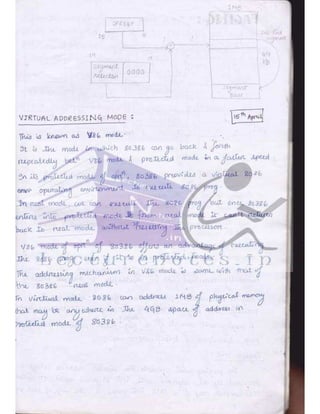 1MB
OFFSET
15 0
64
KB
19 0
Segment
selector 0000
Segment
base
VIRTUAL ADDRESSING MODE :
15th April
This is known as V86 mode.
It is the mode in which 80386 can go back & forth
repeatedly betn V86 mode & protected mode in a faster speed
In its protected mode of opn, 80386 provides a virtual 8086
operating environment to execute 8086 prog.
In real mode, we can execute the 8086 prog but once 80386
enters into protected mode from real mode it can't return
back to real mode without resetting the processor.
V86 mode of opn of 80386 offers an advantage of executing
the 8086 prog while in protected mode.
The addressing mechanism in V86 mode is same with that of
the 80386 real mode
In Virtual mode 8086 can address 1MB of physical memory
that may be anywhere in the 4GB space of address in
protected mode of 80386.